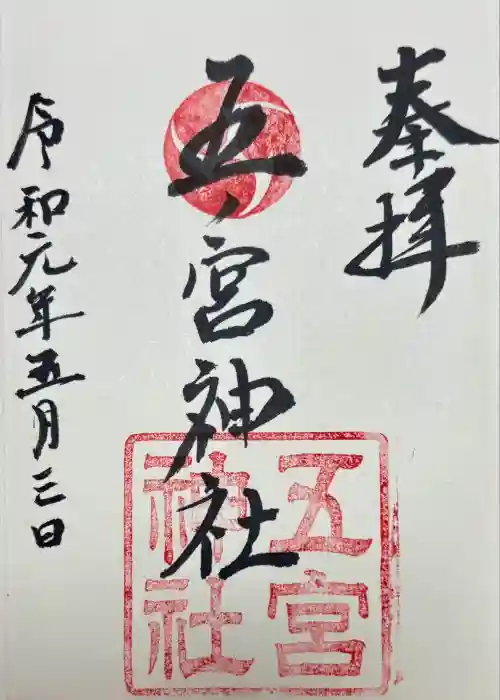 奉拝
五ノ宮神社
五宮
神社
令和元年五月三日